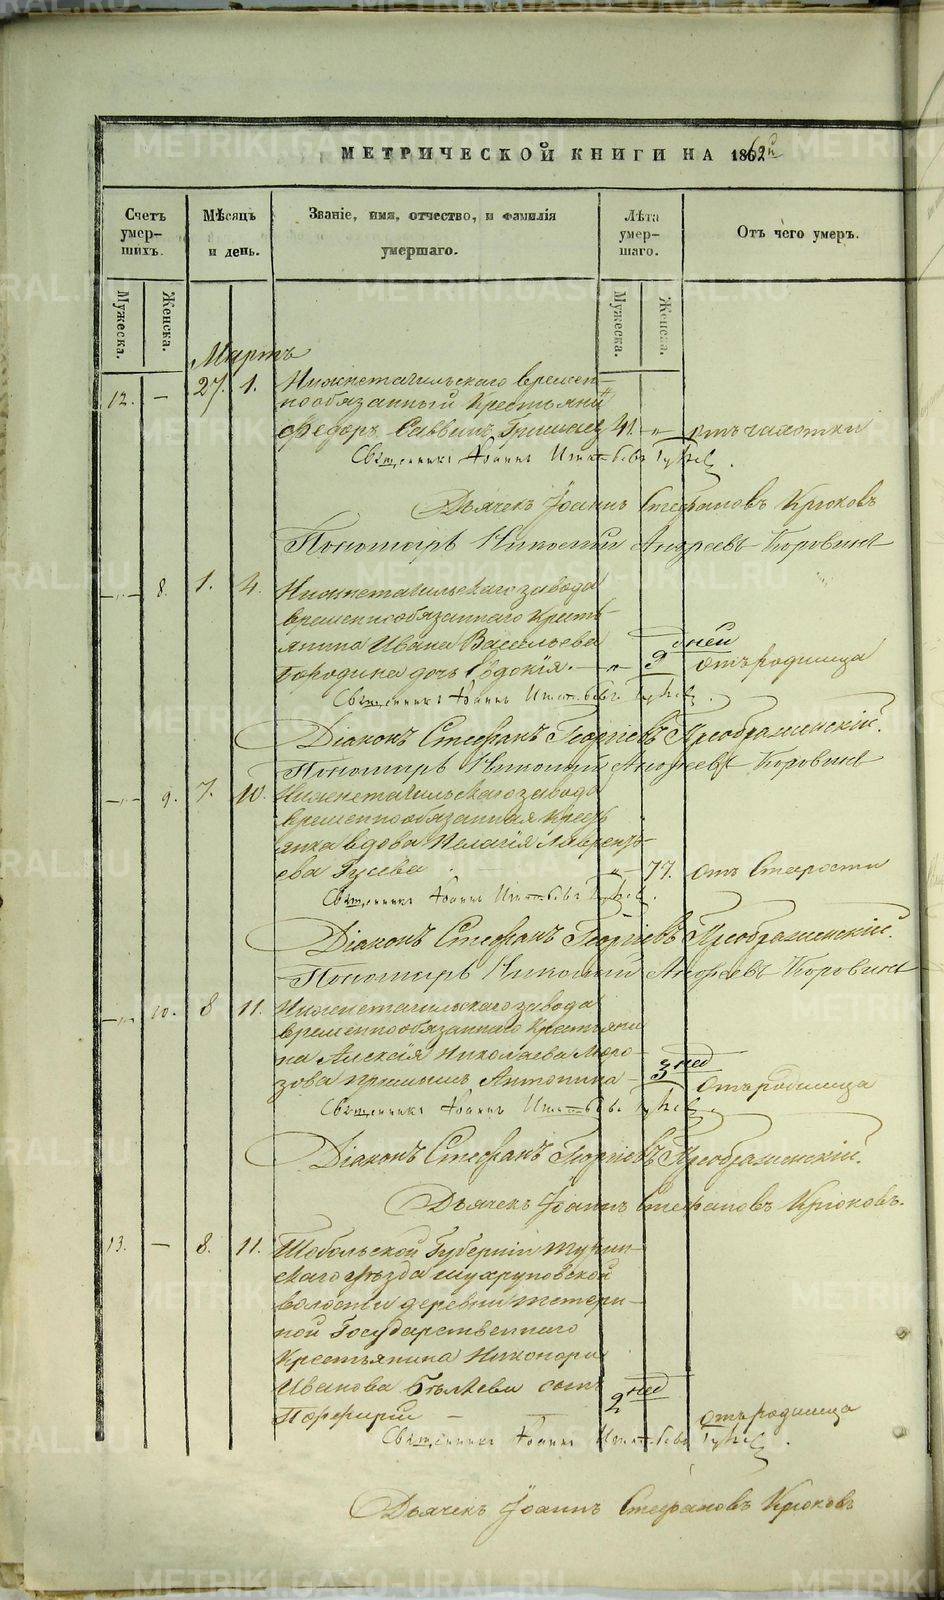 МЕТРИЧЕСКОЙ КНИГИ НА 1862й
Счетъ умер- шихъ.
Мѣсяцъ и день.
Званіе, имя, отчество, и фамилія умершаго.
Лѣта умер- шаго.
Отъ чего умеръ.
Мужеска. Женска. Мужеска. Женска.
Мартъ
12. — 27. 1. Нижнетагильскаго времен-
нообязанный Крестьянинъ
Федоръ Саввинъ 41. „ отъ чахотки
Священникъ Іоаннъ
Дьячекъ Іоаннъ Стефановъ Крюковъ
Пономарь Николай Андреевъ Боровинъ
—„— 8. 1. 4. Нижнетагильскаго завода
временнообязаннаго Кресть-
янина Ивана Васильева
Бородина дочь Евдокія. — „ 9 дней отъ родимца
Священникъ Іоаннъ
Діаконъ Стефанъ Георгіевъ Преображенскій.
Пономарь Николай Андреевъ Боровинъ
—„— 9. 7. 10. Нижнетагильскаго завода
временнообязанная Кресть-
янка вдова Пелагія Лаврентъ-
ева Гусева — „ — 77. отъ Старости
Священникъ Іоаннъ
Діаконъ Стефанъ Георгіевъ Преображенскій.
Пономарь Николай Андреевъ Боровинъ
—„— 10. 8 11. Нижнетагильскаго завода
временнообязаннаго Крестьяни-
на Алексія Николаева Моро-
зова Антонина — 3 нед отъ родимца
Священникъ Іоаннъ
Діаконъ Стефанъ Георгіевъ Преображенскій.
Дьячекъ Іоаннъ Стефановъ Крюковъ.
13. — 8. 11. Тобольской Губерніи Турин-
скаго уѣзда
волости деревни
Государственнаго
Крестьянина Никонора
Иванова Бѣляева сынъ
Порфирій — — 2 нед отъ родимца
Священникъ Іоаннъ
Дьячекъ Іоаннъ Стефановъ Крюковъ
METRIKI.GASO-URAL.RU